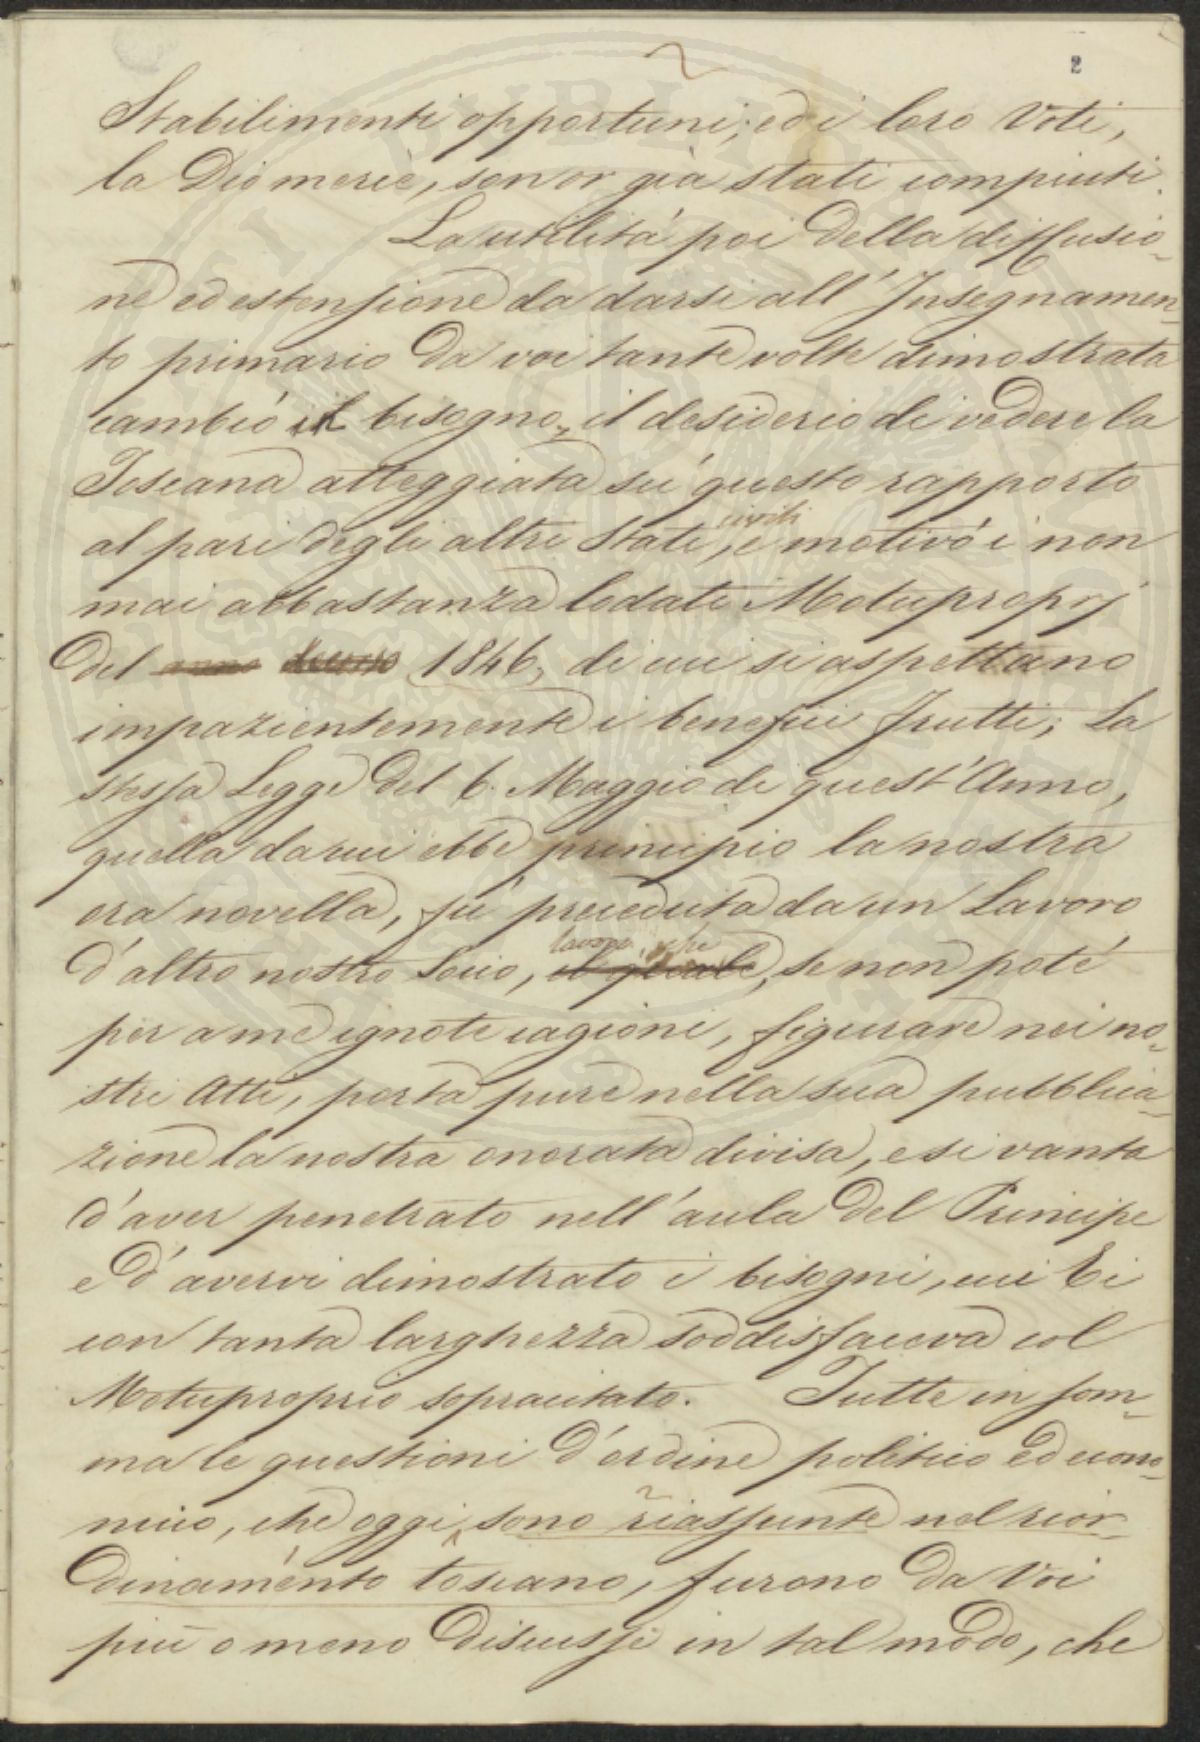 2
Stabilimenti opportuni; ed i loro Voti,
la Dio mercè, son or già stati compiuti.
La utilità poi della diffusio-
ne ed estensione da darsi all' Insegnamen-
to primario da voi tante volte dimostrata
cambiò il bisogno, il desiderio di vedere la
Toscana atteggiata su questo rapporto
civili
al pari degli altri Stati, e motivò i non
mai abbastanza lodati Motupropri
del anno decorso 1846, di cui si aspettano
impazientemente i benefici frutti; La
stessa Legge del 6. Maggio di quest' Anno,
quella da cui ebbe principio la nostra
era novella, fù preceduta da un Lavoro
lavoro, che
d'altro nostro Socio, il quale, se non poté
per a me ignote cagioni, figurare nei no-
stri Atti, porta pure nella sua pubblica-
zione la nostra onorata divisa, e si vanta
d'aver penetrato nell' aula del Principe
e d' avervi dimostrato i bisogni, cui Ei
con tanta larghezza soddisfaceva col
Motuproprio sopracitato. Tutte in som-
ma le questioni d'ordine politico ed econo-
mico, che oggi sono riassunte nel rior-
dinamento toscano, furono da Voi
più o meno discusse in tal modo, che